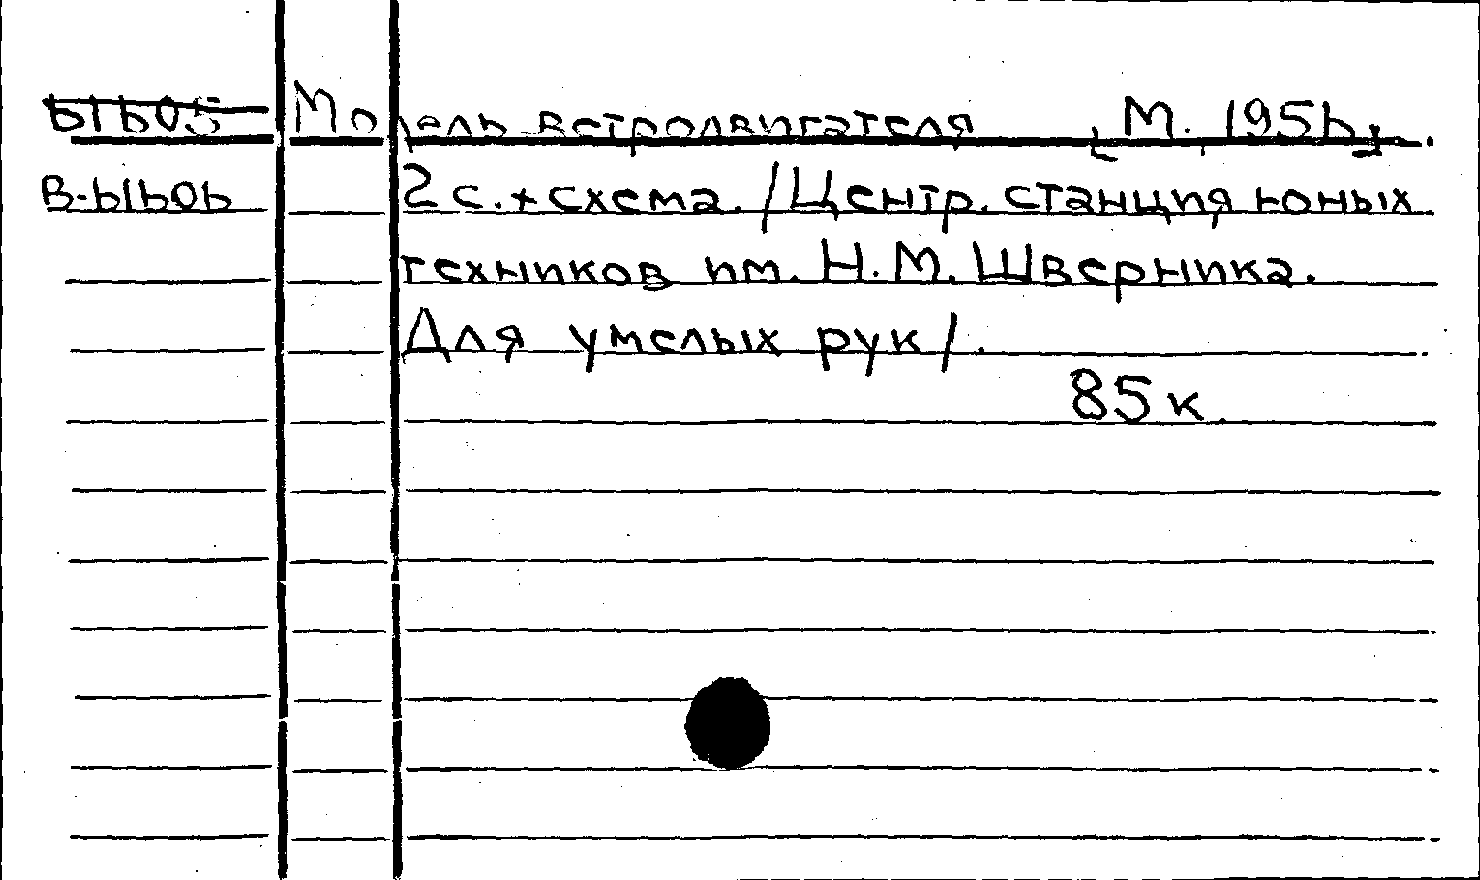 61605 Модель ветродвигателя [М., 1956].
В-61606 2 с. + схема. /Центр. станция юных
техников им. Н.М. Шверника.
Для умелых рук/.
85 к.